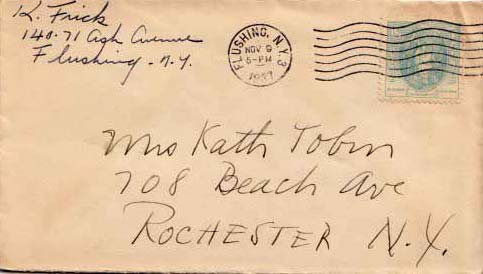 K. Frick
140-71 Ash Avenue
Flushing - N.Y.
FLUSHING, N.Y. 3
NOV 9
5-PM
1957
Mrs Kath Tobin
708 Beach Ave
ROCHESTER N.Y.